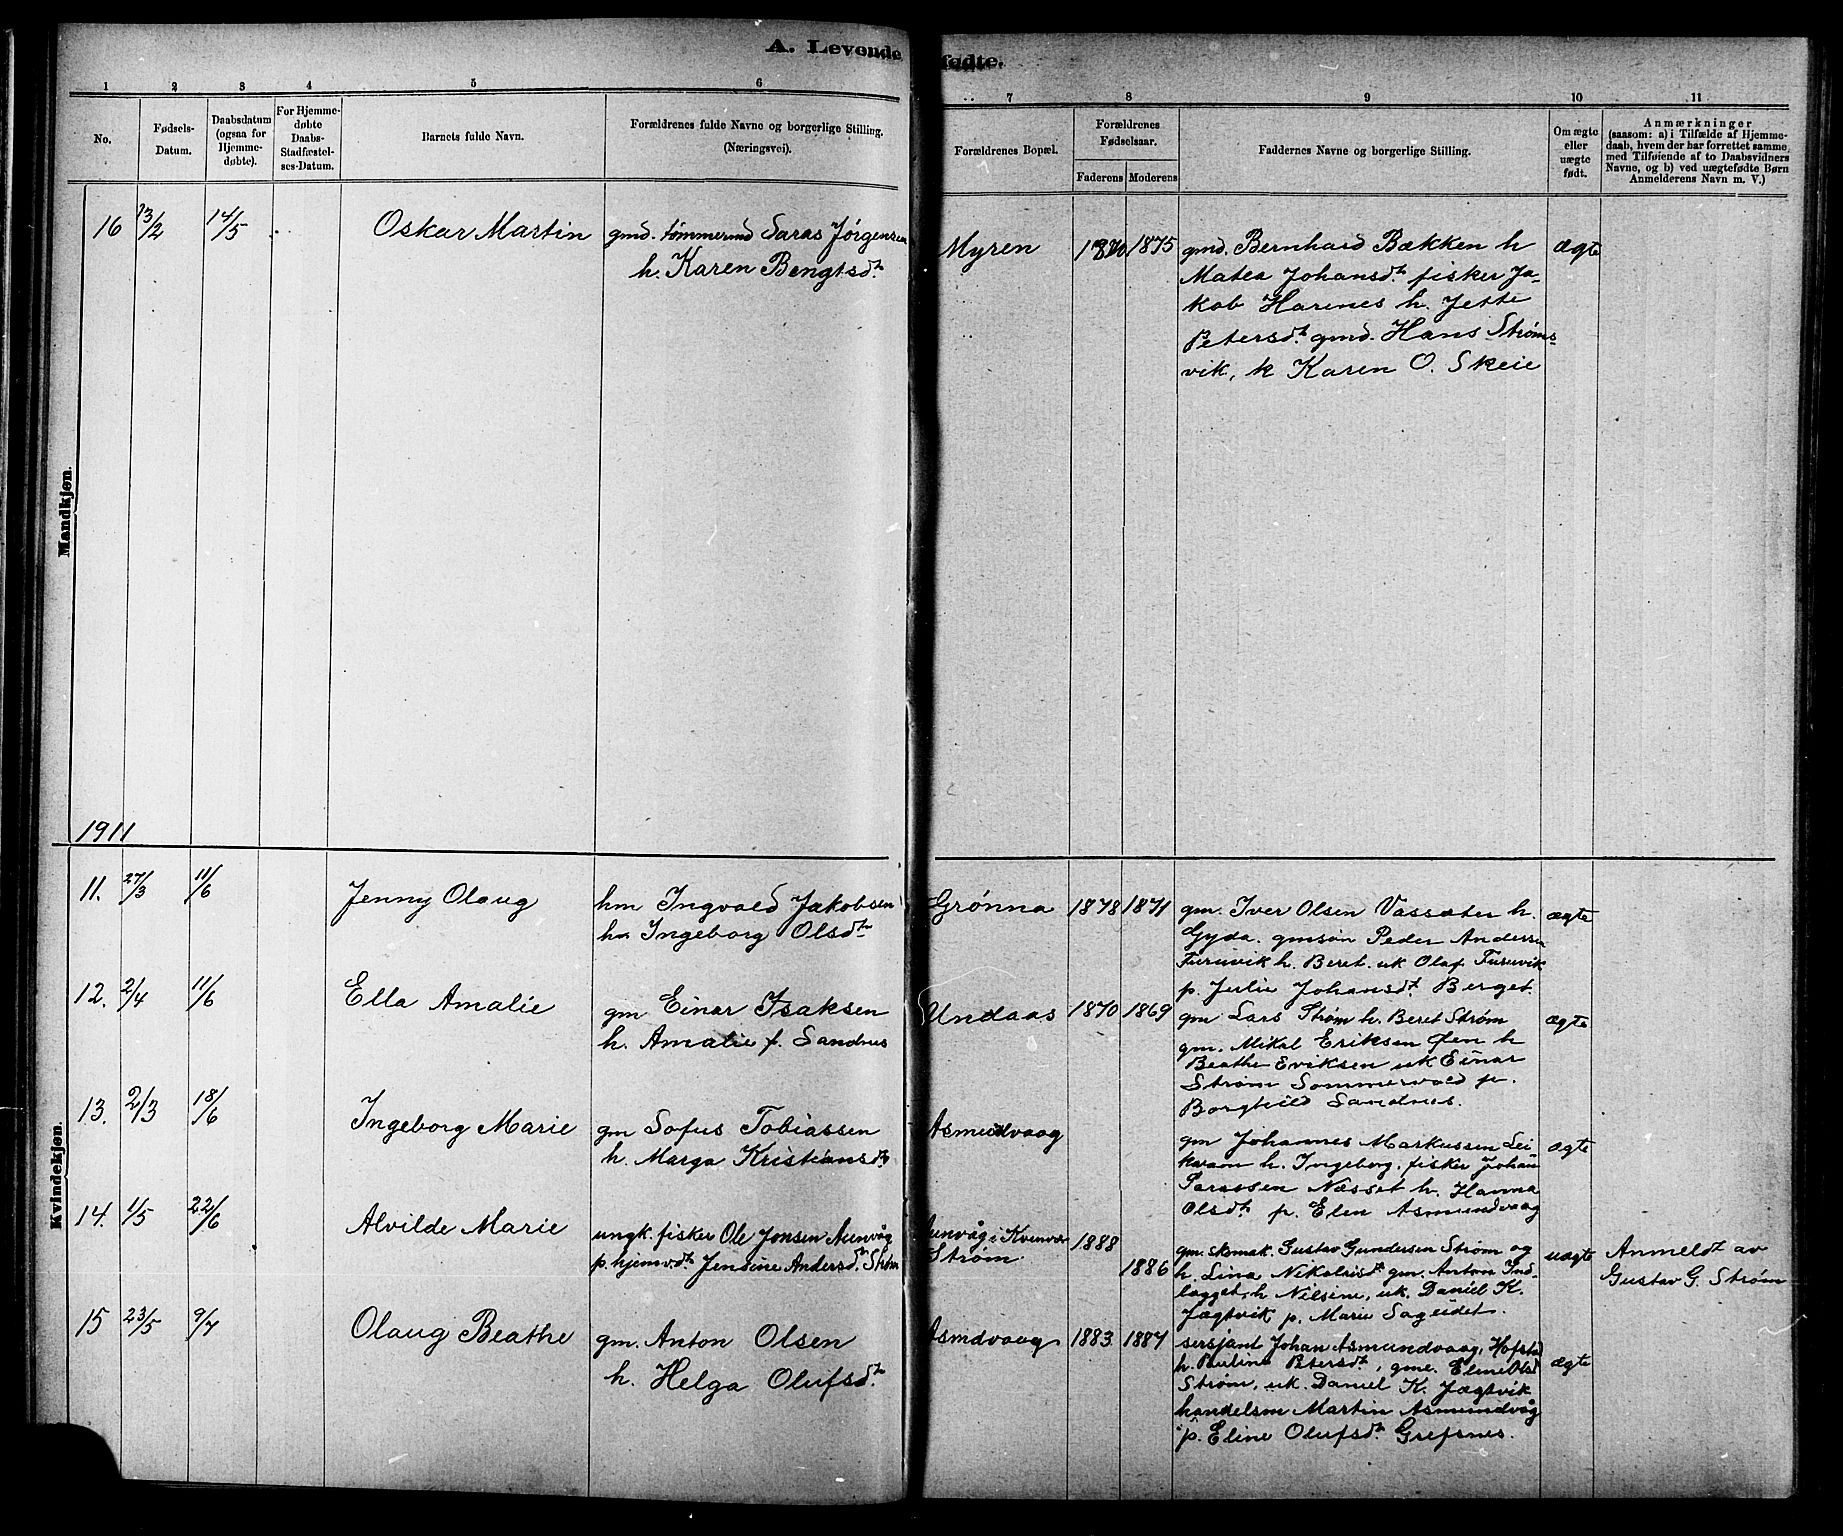 A. Levende
fødte.
1 2 3 4 5 6
7 8 9 10 11
No.
Fødsels-
Datum.
Daabsdatum
(ogsaa for
Hjemme-
døbte).
For Hjemme-
døbte
Daabs-
Stadfæstel-
ses-Datum.
Barnets fulde Navn.
Forældrenes fulde Navne og borgerlige Stilling.
(Næringsvei).
Forældrenes Bopæl.
Forældrenes
Fødselsaar.
Faderens Moderens
Faddernes Navne og borgerlige Stilling.
Om ægte
eller
uægte
født.
Anmærkninger
(saasom: a) i Tilfælde af Hjemme-
daab, hvem der har forrettet samme,
med Tilføiende af to Daabsvidners
Navne, og b) ved uægtefødte Børn
Anmelderens Navn m. V.)
Mandkjøn.
16 13/2 14/5 Oskar Martin
gmd. tømmermd Saras Jørgensen
h. Karen Bengtsdtr
Myren 1870 1875
gmd. Bernhard Bækken h
Matea Johansdtr fisker Ja-
kob Harenes h. Jette
Petersdtr gmd. Hans Strøms-
vik, k Karen O. Skeie
ægte
1911
Kvindekjøn.
11. 27/3 11/6 Jenny Olaug
hm Ingvald Jakobsen
hu Ingeborg Olsdtr
Grønna 1878 1871
gm. Iver Olsen Vassæter h.
Gyda. gmsøn Peder Andersen
Furuvik h. Beret. uk Olaf Furuvik
p. Julie Johansdtr Berget.
ægte
12. 2/4 11/6 Ella Amalie
gm Einar Isaksen
h. Amalie f. Sandnes
Undaas 1870 1869
gm Lars Strøm h. Beret Strøm
gm. Mikal Eriksen Øen h
Beathe Eriksen uk Einar
Strøm Sommervold p.
Borghild Sandnes.
ægte
13. 2/3 18/6 Ingeborg Marie
gm Sofus Tobiassen
h. Marga Kristiansdtr
Asmundvaag
gm Johannes Markussen Lei-
kvam h. Ingeborg, fisker Johan
Sarassen Næsset h. Hanna
Olsdtr p. Elen Asmundvaag
ægte
14. 1/5 22/6 Alvilde Marie
ungk. fisker Ole Jonsen Aunvåg
p. hjemv.dtr Jensine Andersdtr Strøm
Aunvåg i Kvenvær
Strøm
1888
1886
gm. skomak. Gustav Gundersen Strøm og
h. Lina Nikolaisdtr gm. Anton Ind-
lægget, h Nilsine, uk. Daniel K.
Jægtvik p. Marie Sageidet.
uægte
Anmeldt av
Gustav G. Strøm
15 23/5 9/7 Olaug Beathe
gm. Anton Olsen
h. Helga Olufsdtr
Asmdvaag 1883 1887
sersjant Johan Asmundvaag, Hofstad
h. Pauline Petersdtr, gme. Eline Olsd
Strøm, uk. Daniel K. Jægtvik
handelsm Martin Asmundvåg
p. Eline Olufsdtr Grefsnes.
ægte